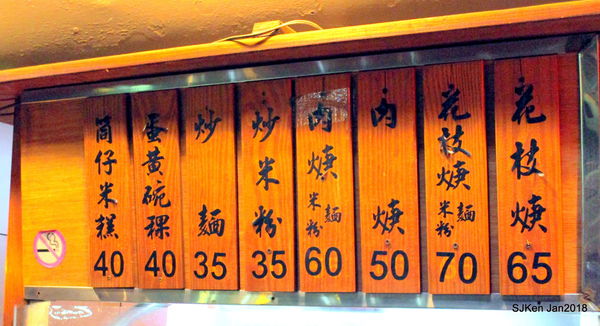 花枝焿 65
花枝焿 米粉 麵 70
肉焿 50
肉焿 米粉 麵 60
炒米粉 35
炒麵 35
蛋黃碗粿 40
筒仔米糕 40
SJKen Jan2018